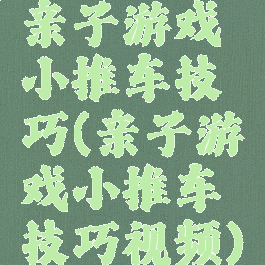 亲子游戏
小推车技
巧(亲子游
戏小推车
技巧视频)